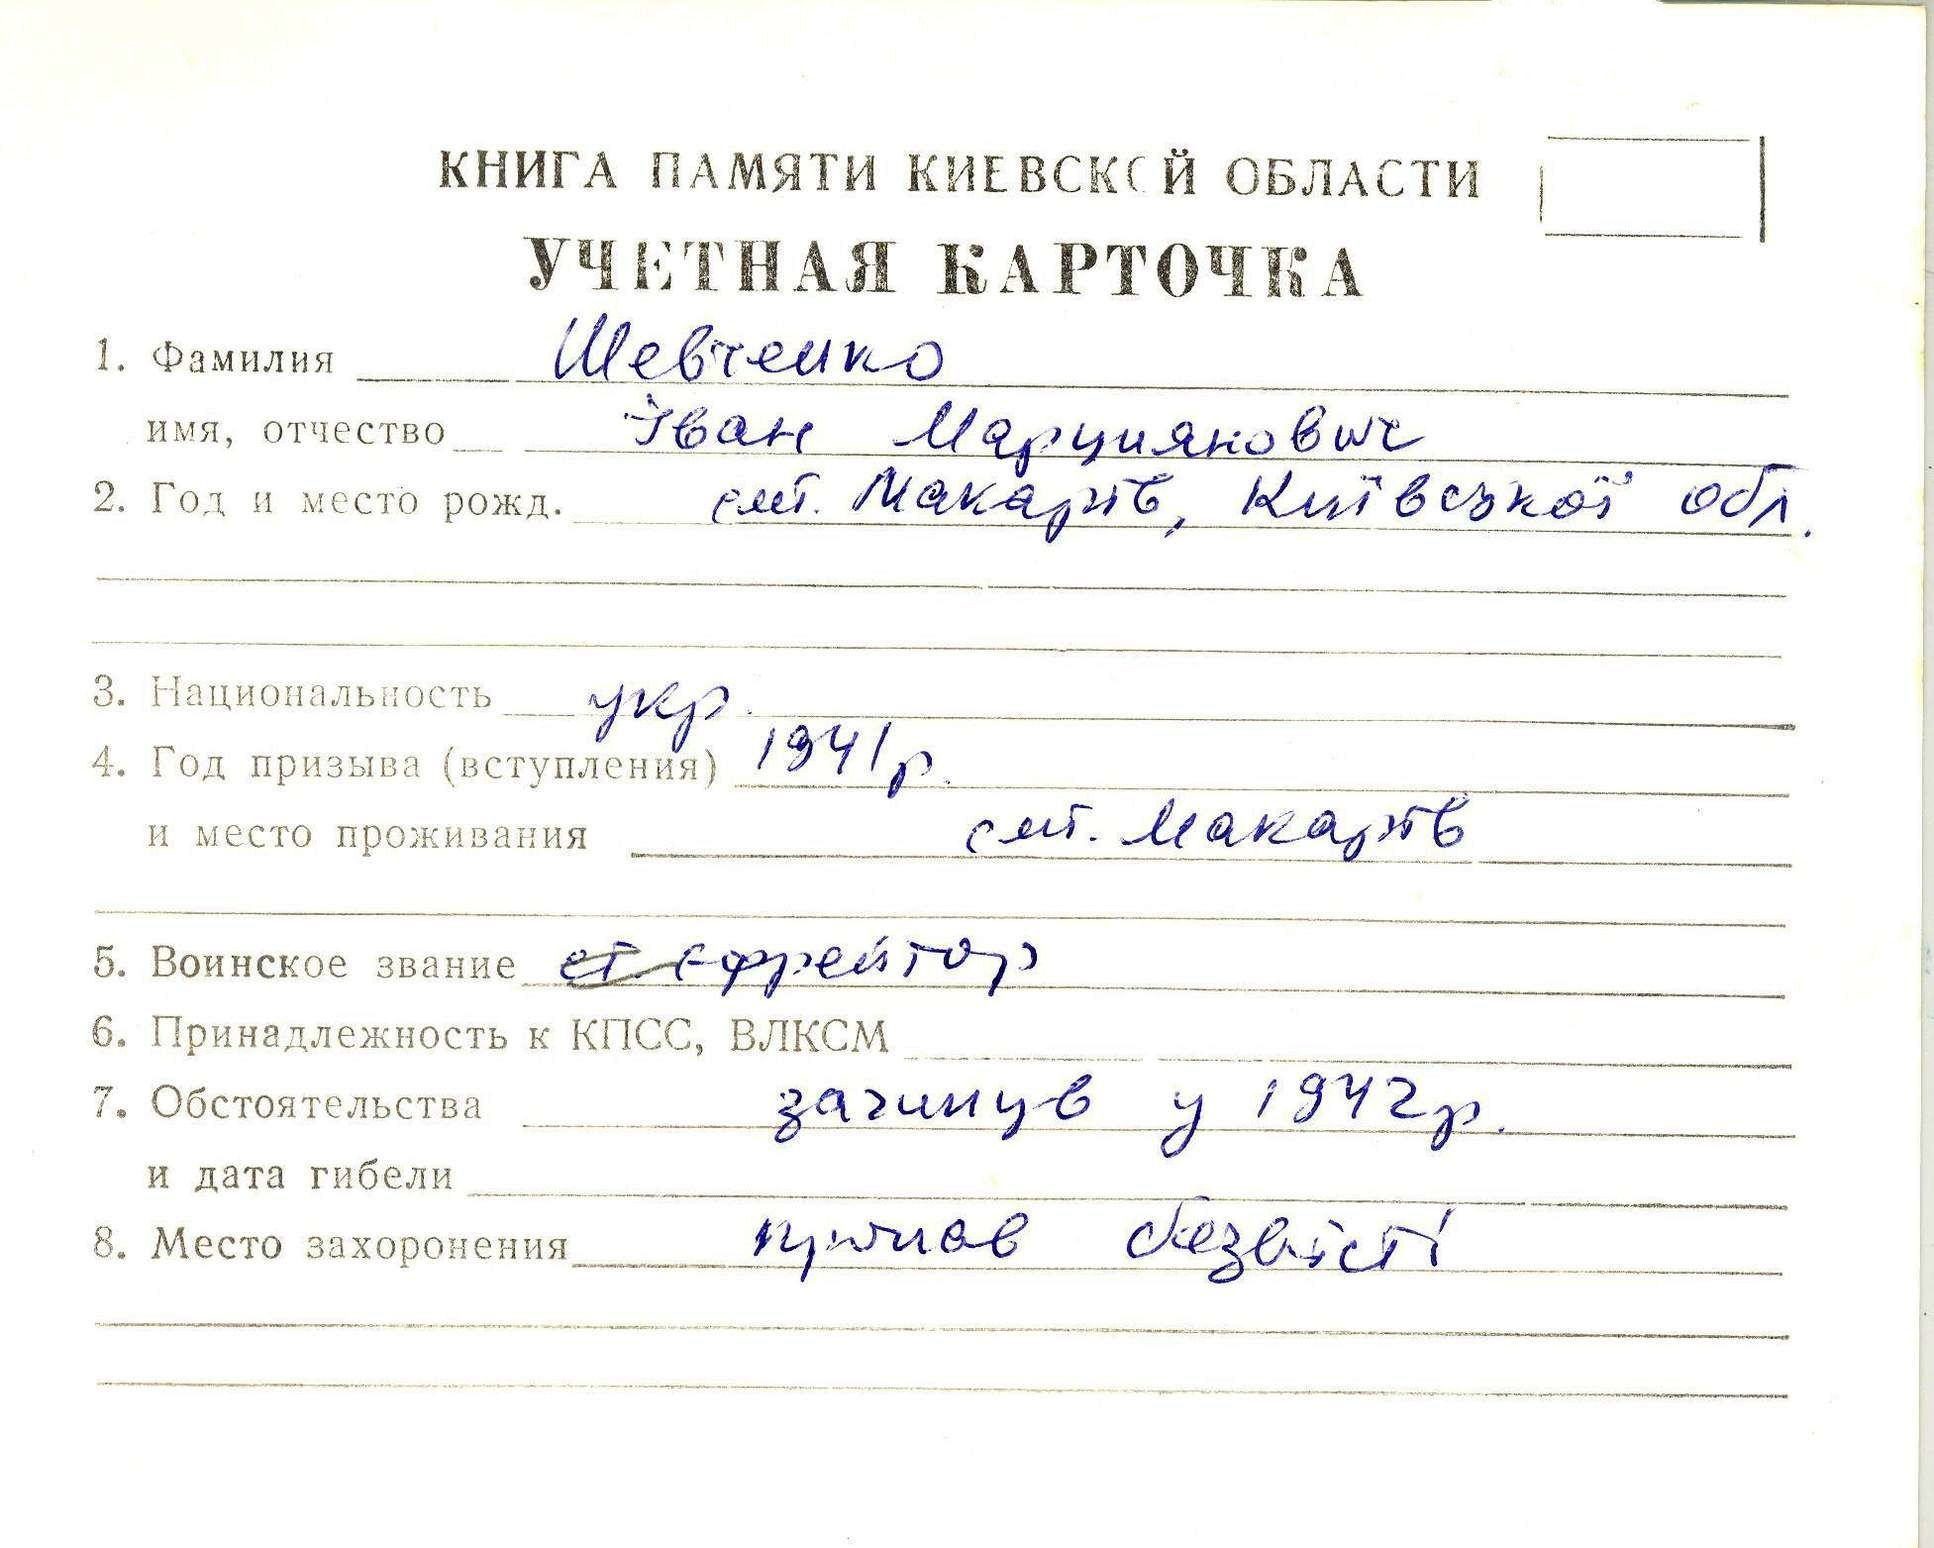 КНИГА ПАМЯТИ КИЕВСКОЙ ОБЛАСТИ
УЧЕТНАЯ КАРТОЧКА
1. Фамилия Шевченко
имя, отчество Іван Марциянович
2. Год и место рожд. смт. Макарів, Київської обл.
3. Национальность укр.
4. Год призыва (вступления) 1941 р.
и место проживания смт. Макарів
5. Воинское звание ст. єфрейтор
6. Принадлежность к КПСС, ВЛКСМ
7. Обстоятельства загинув у 1942 р.
и дата гибели
8. Место захоронения пропав безвісті